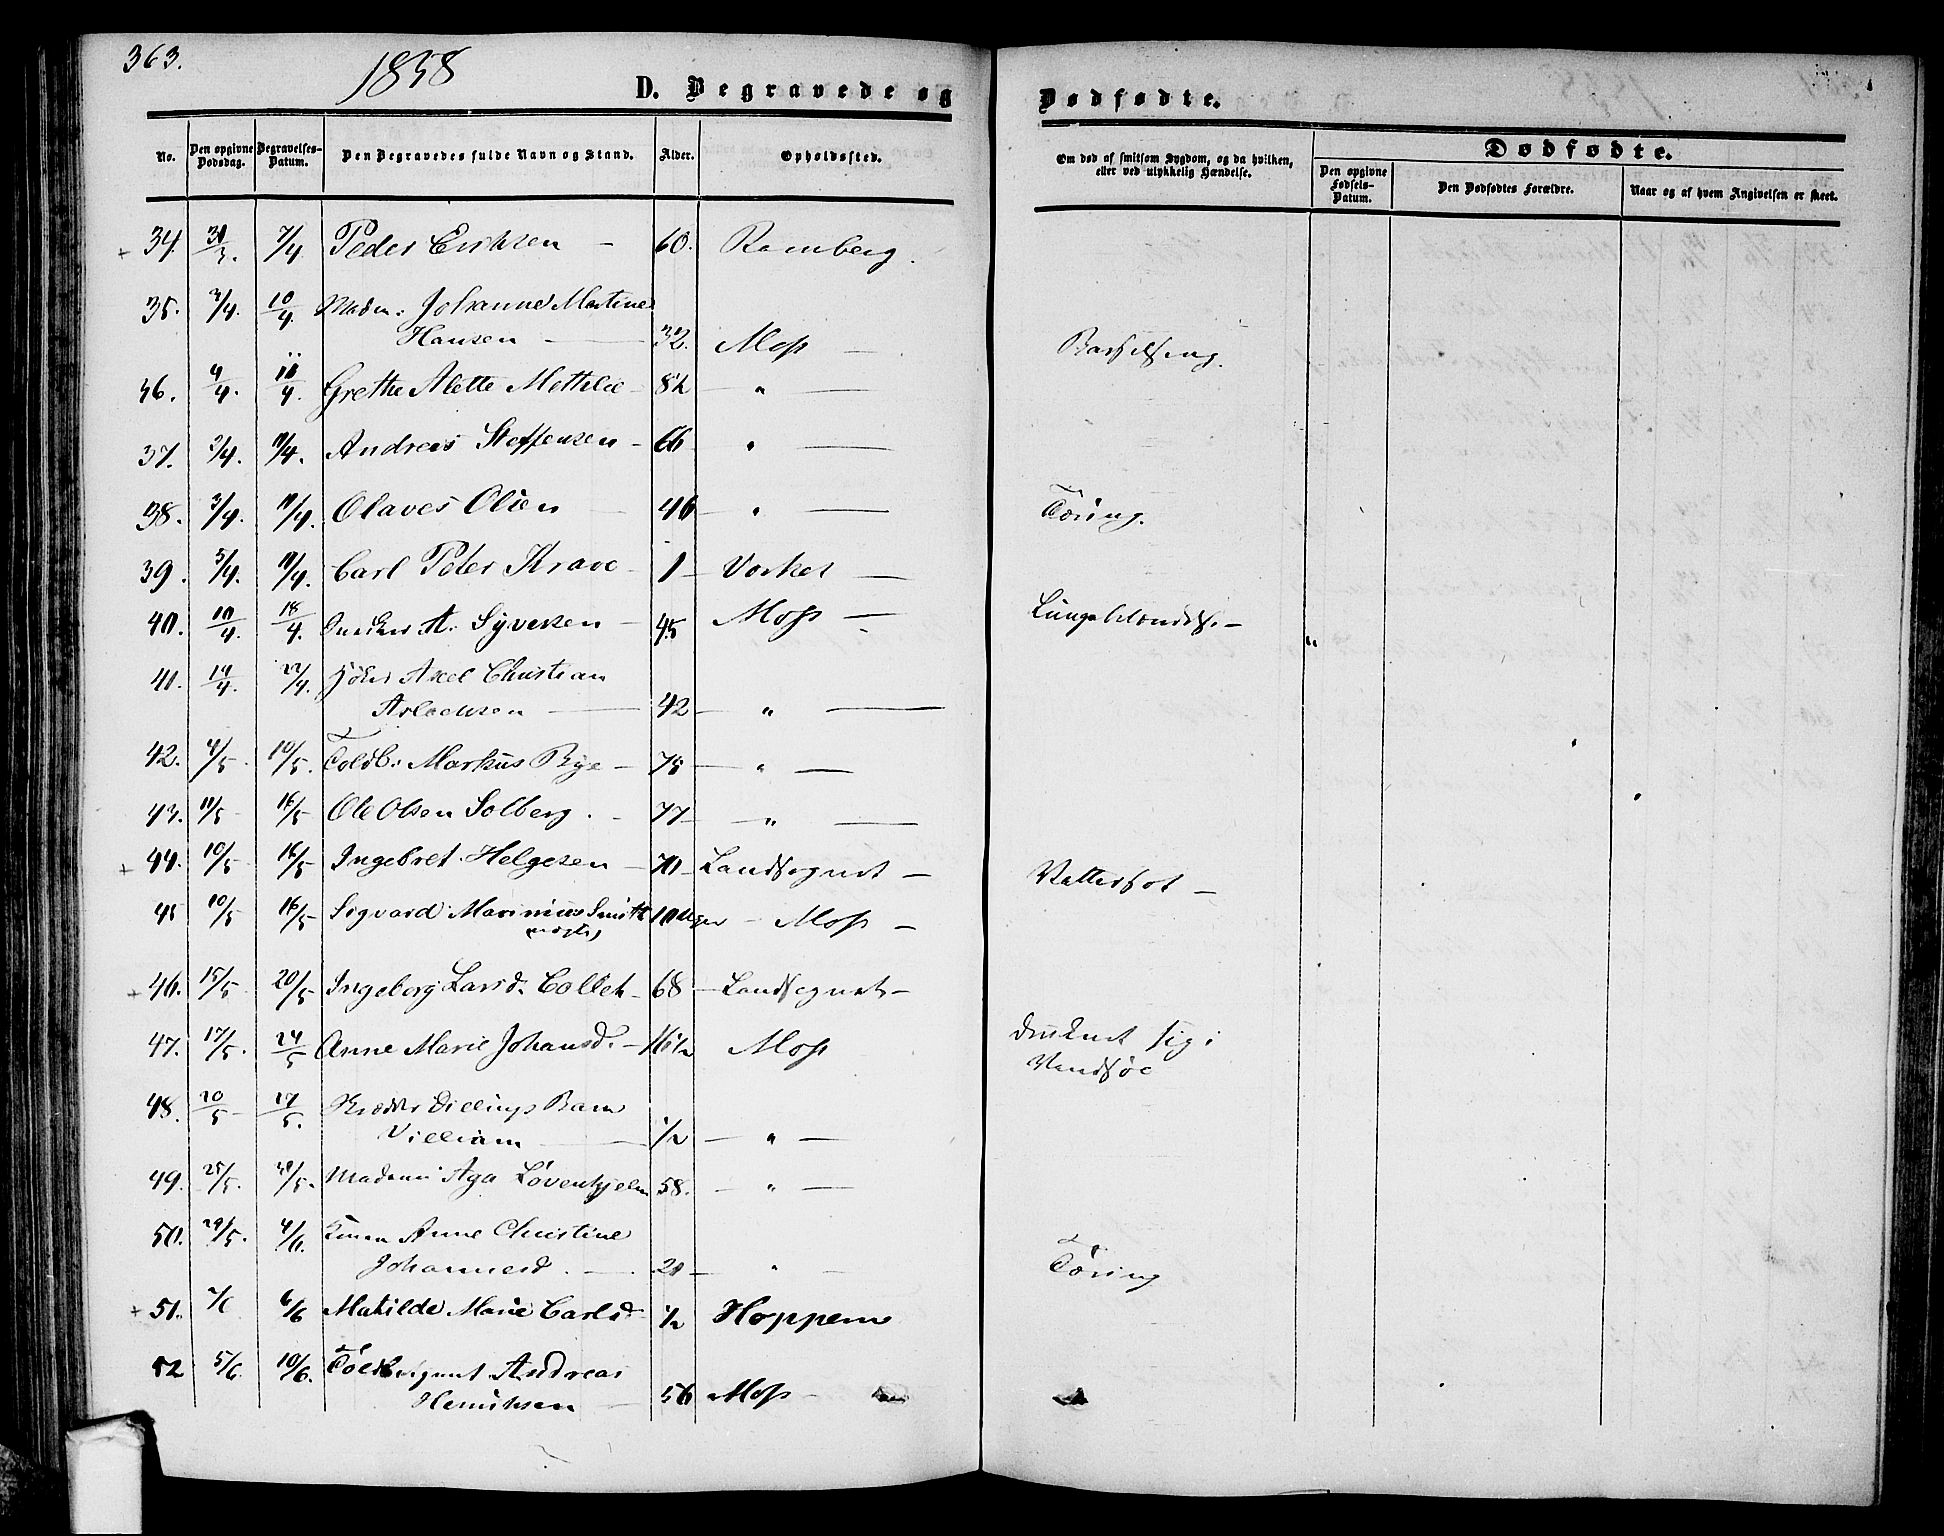 363.
1858
D. Begravede og
Dødfødte.
No.
Den opgivne Dødsdag.
Begravelses-Datum.
Den Begravedes fulde Navn og Stand.
Alder.
Opholdssted.
Om død af smitsom Sygdom, og da hvilken, eller ved ulykkelig Hændelse.
Dødfødte.
Den opgivne Fødsels-Datum.
Den Dødfødtes Forældre.
Naar og af hvem Angivelsen er skeet.
+ 34. 31/3. 7/4 Peder Eriksen – 60. Ramberg.
35. 3/4. 10/4. Madm: Johanne Martine
Hansen — 32. Moss — Barselseng.
36. 4/4. 11/4. Grethe Alette Mathilde – 8 1/2 — " —
37. 2/4. 11/4. Andreas Steffensen – 66 " —
38. 3/4. 11/4. Olaves Olsen 46 — " — Tæring.
39. 5/4. 11/4. Carl Peter Krave – 1 — Vorket —
40. 10/4. 18/4. A. Syversen – 45 Moss — Lungebetændelse –
41. 14/4. 22/4. Axel Christian
42 — " —
42. 4/5. 10/5. Toldb: Markus Bye – 78 — " —
43. 11/5 16/5 Ole Olsen Solberg. – 77 — " —
+ 44. 10/5 16/5 Ingebret Helgesen – 70 – Landsognet – Vattersot –
45 10/5 16/5 Sigvard Marinius Smith 10 Uger – Moss –
(uægte)
+ 46. 15/5 20/5 Ingeborg Larsd. Collet – 68 – Landsognet –
47. 17/5. 24/5 Anne Marie Johansd. – 16 1/2 Moss druknet sig i
Vandsøe
48. 20/5 27/5. Dillings Barn
Villiam — 1/2 — " —
49. 25/5. 30/5. Madame Aga Løvenhjelm 58. — " —
50. 29/5. 4/6. Anne Christine
Johannesd. — 20 — " — Tæring
+ 51. 2/6 6/6 Matilde Marie Carlsd 1/2 Hoppern
52 5/6. 10/6. Andreas
Henriksen — 56 Moss –